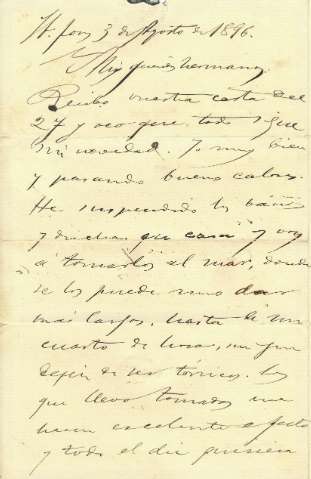 3 de Agosto de 1896.
Mis queridos hermanos:
Recibo vuestra carta del
27 y veo que todo sigue
sin novedad. Yo muy bien
y pasando buenos calores.
He suspendido los baños
y duchas en casa y voy
á tomarlos al mar, donde
se los puede uno dar
más largos, hasta de un
cuarto de hora, sin que
dejen de ser tónicos. Los
que llevo tomados me
hacen excelente efecto
y todo el dia